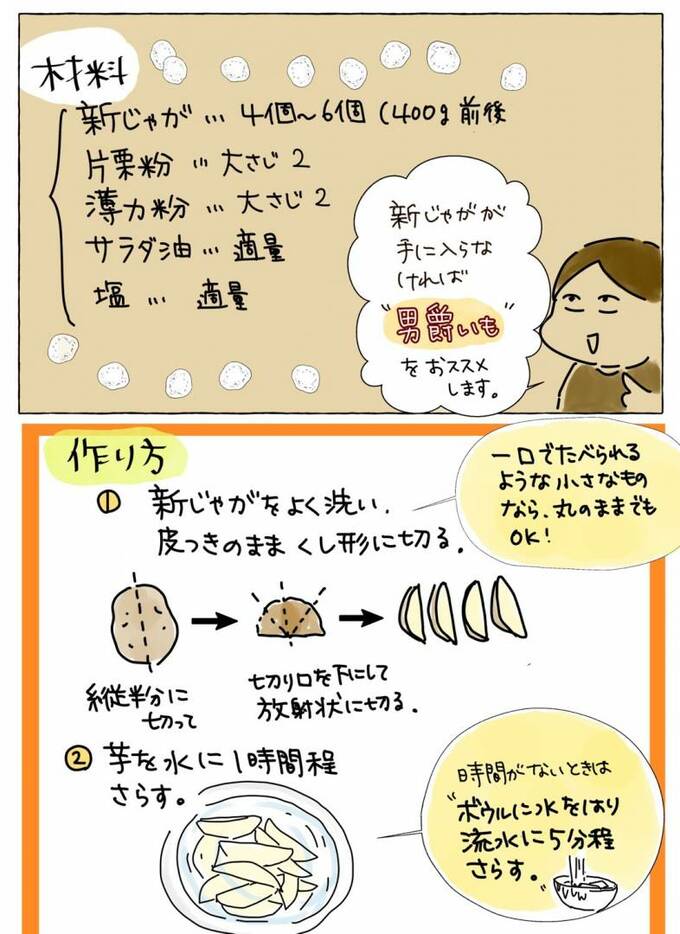 材料
新じゃが… 4個〜6個 (400g前後
片栗粉 … 大さじ2
薄力粉 … 大さじ2
サラダ油… 適量
塩 … 適量
新じゃがが
手に入らな
ければ
"男爵いも"
をおススメ
します。
作り方
① 新じゃがをよく洗い、
皮つきのまま くし形に切る。
一口でたべられる
ような小さなもの
なら、丸のままでも
OK!
縦半分に
切って
切り口を下にして
放射状に切る。
② 芋を水に1時間程
さらす。
時間がないときは
"ボウルに水をはり
流水に5分程
さらす。"